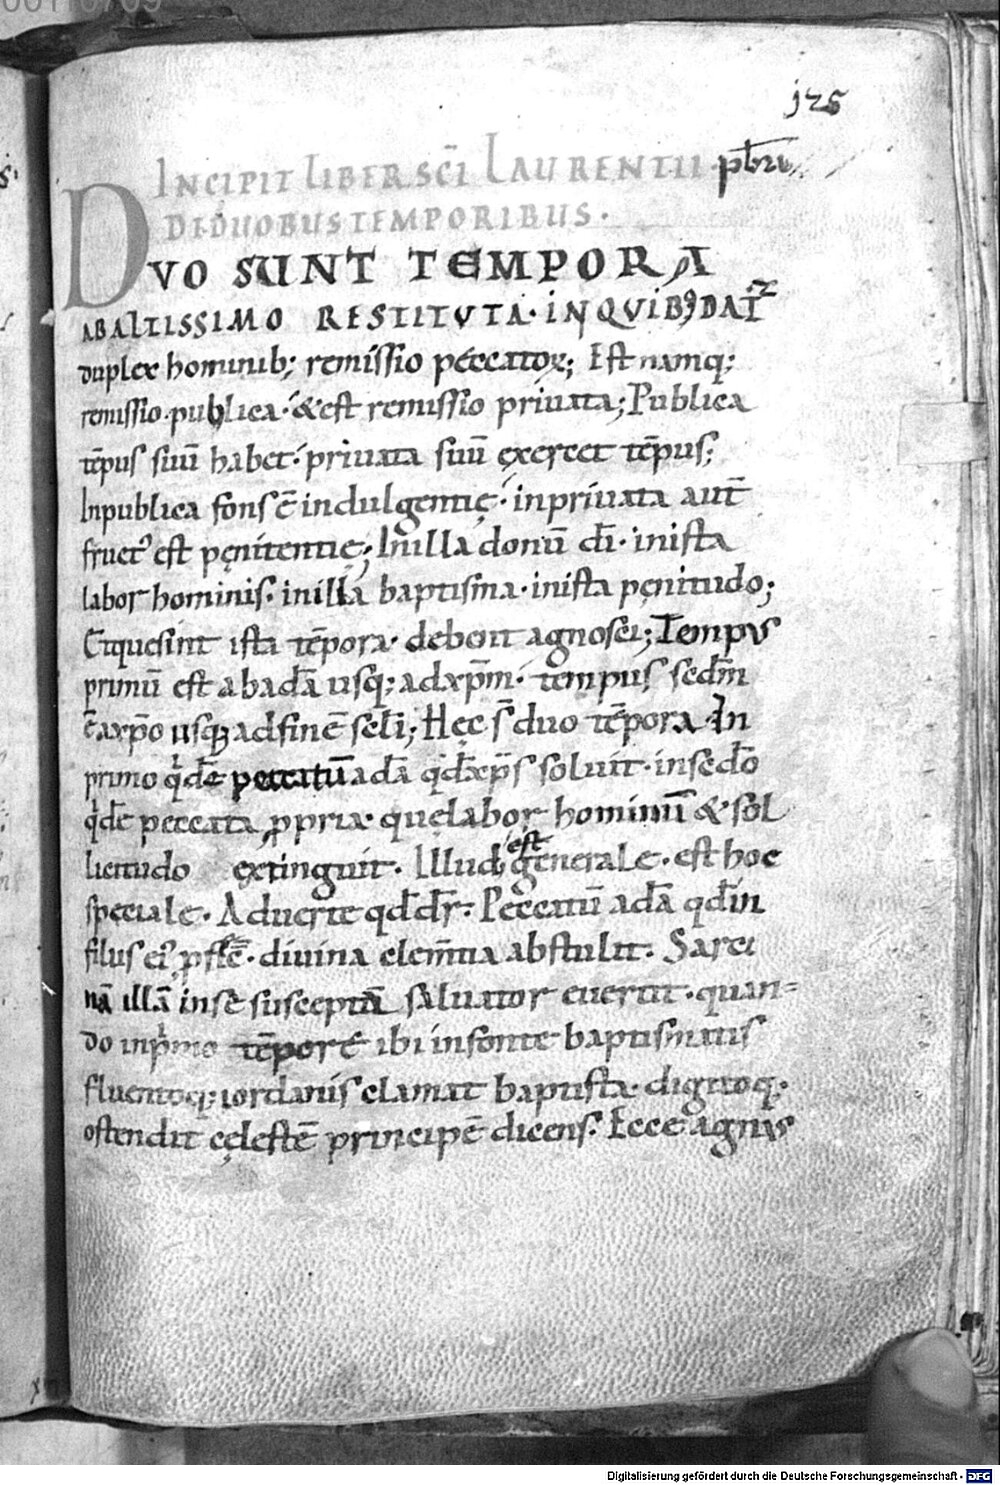 00110709
125
INCIPIT LIBER SCĪ LAURENTII pbri
DE DUOBUS TEMPORIBUS.
DVO SUNT TEMPORA
AB ALTISSIMO RESTITVTA. IN QVIBꝰ DAT̃
duplex hominib; remissio peccatoꝝ; Est namq;
remissio publica. & est remissio priuata; Publica
tēpus suū habet. priuata suū exercet tēpus;
In publica fons ē indulgentię. in priuata aut̄
fruct᾽ est pęnitentię; In illa donū dī. in ista
labor hominis. in illa baptisma. in ista pęnitudo;
Et que sint ista tēpora. debent agnosci; Tempus
primū est ab adā usq; ad xp̄m. tempus secdm̄
ē a xp̄o usq; ad finē sclī; Hęc s̄ duo tēpora. In
primo qͥdē peccatū adā qd̄ xp̄s soluit. in secdo
qͥdē peccata ꝓpria. que labor hominū & sol
licitudo extinguit. Illud est generale. est hoc
speciale. Aduerte qd̄ dr̄. Peccatū adā qd̄ in
filius ei᾽ ꝓfſē. diuina clem̄tia abstulit. Sarci
nā illā in se susceptā saluator euertit. quan-
do in pͥmo tēpore ibi in fonte baptismatis
fluentoq; iordanis clamat baptista. digitoq;
ostendit cęlestē principē dicens. Ecce agnus
Digitalisierung gefördert durch die Deutsche Forschungsgemeinschaft - DFG